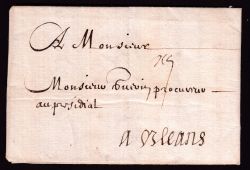 A Monsieur
Monsieur procureur
au présidial
a orleans